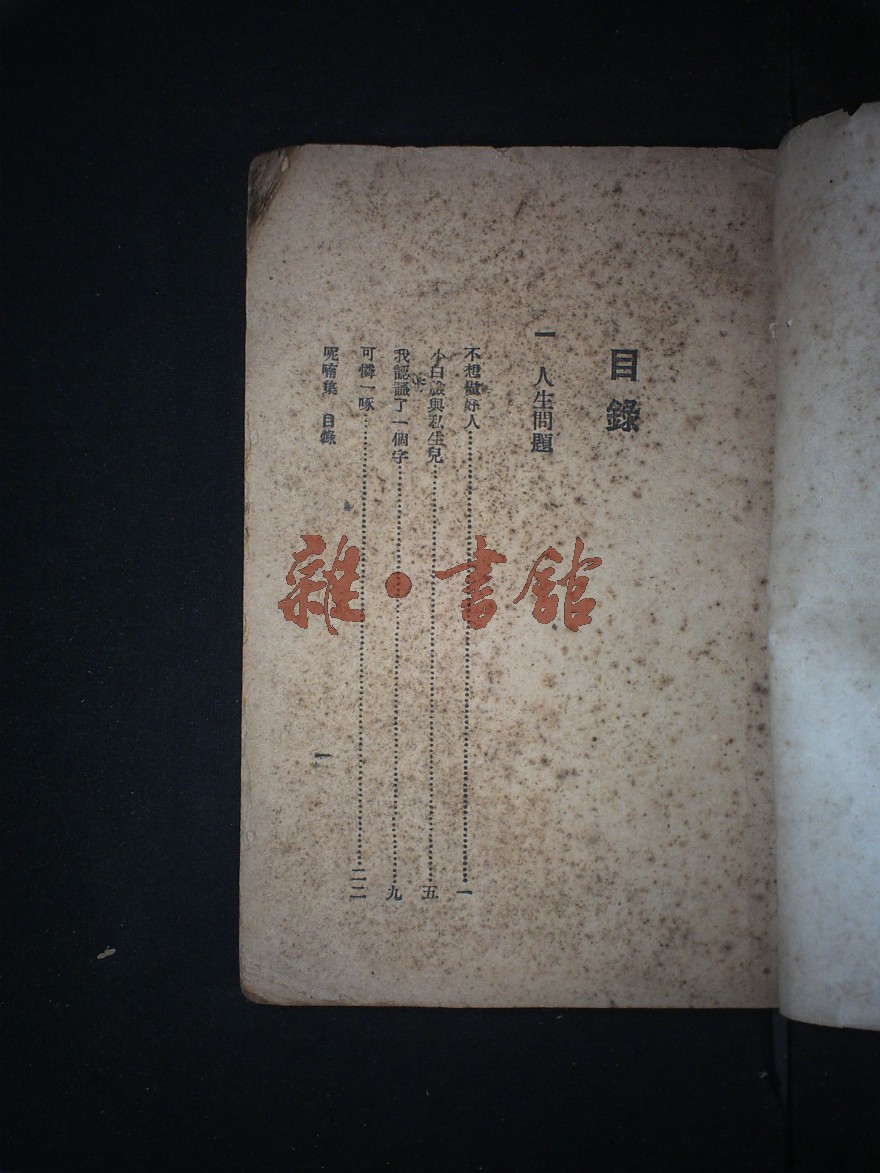 目錄
一 人生問題
不想做好人……一
小白臉與私生兒……五
我認識了一個字……九
可憐一啄……二二
呢喃集 目錄
一
雜·書館